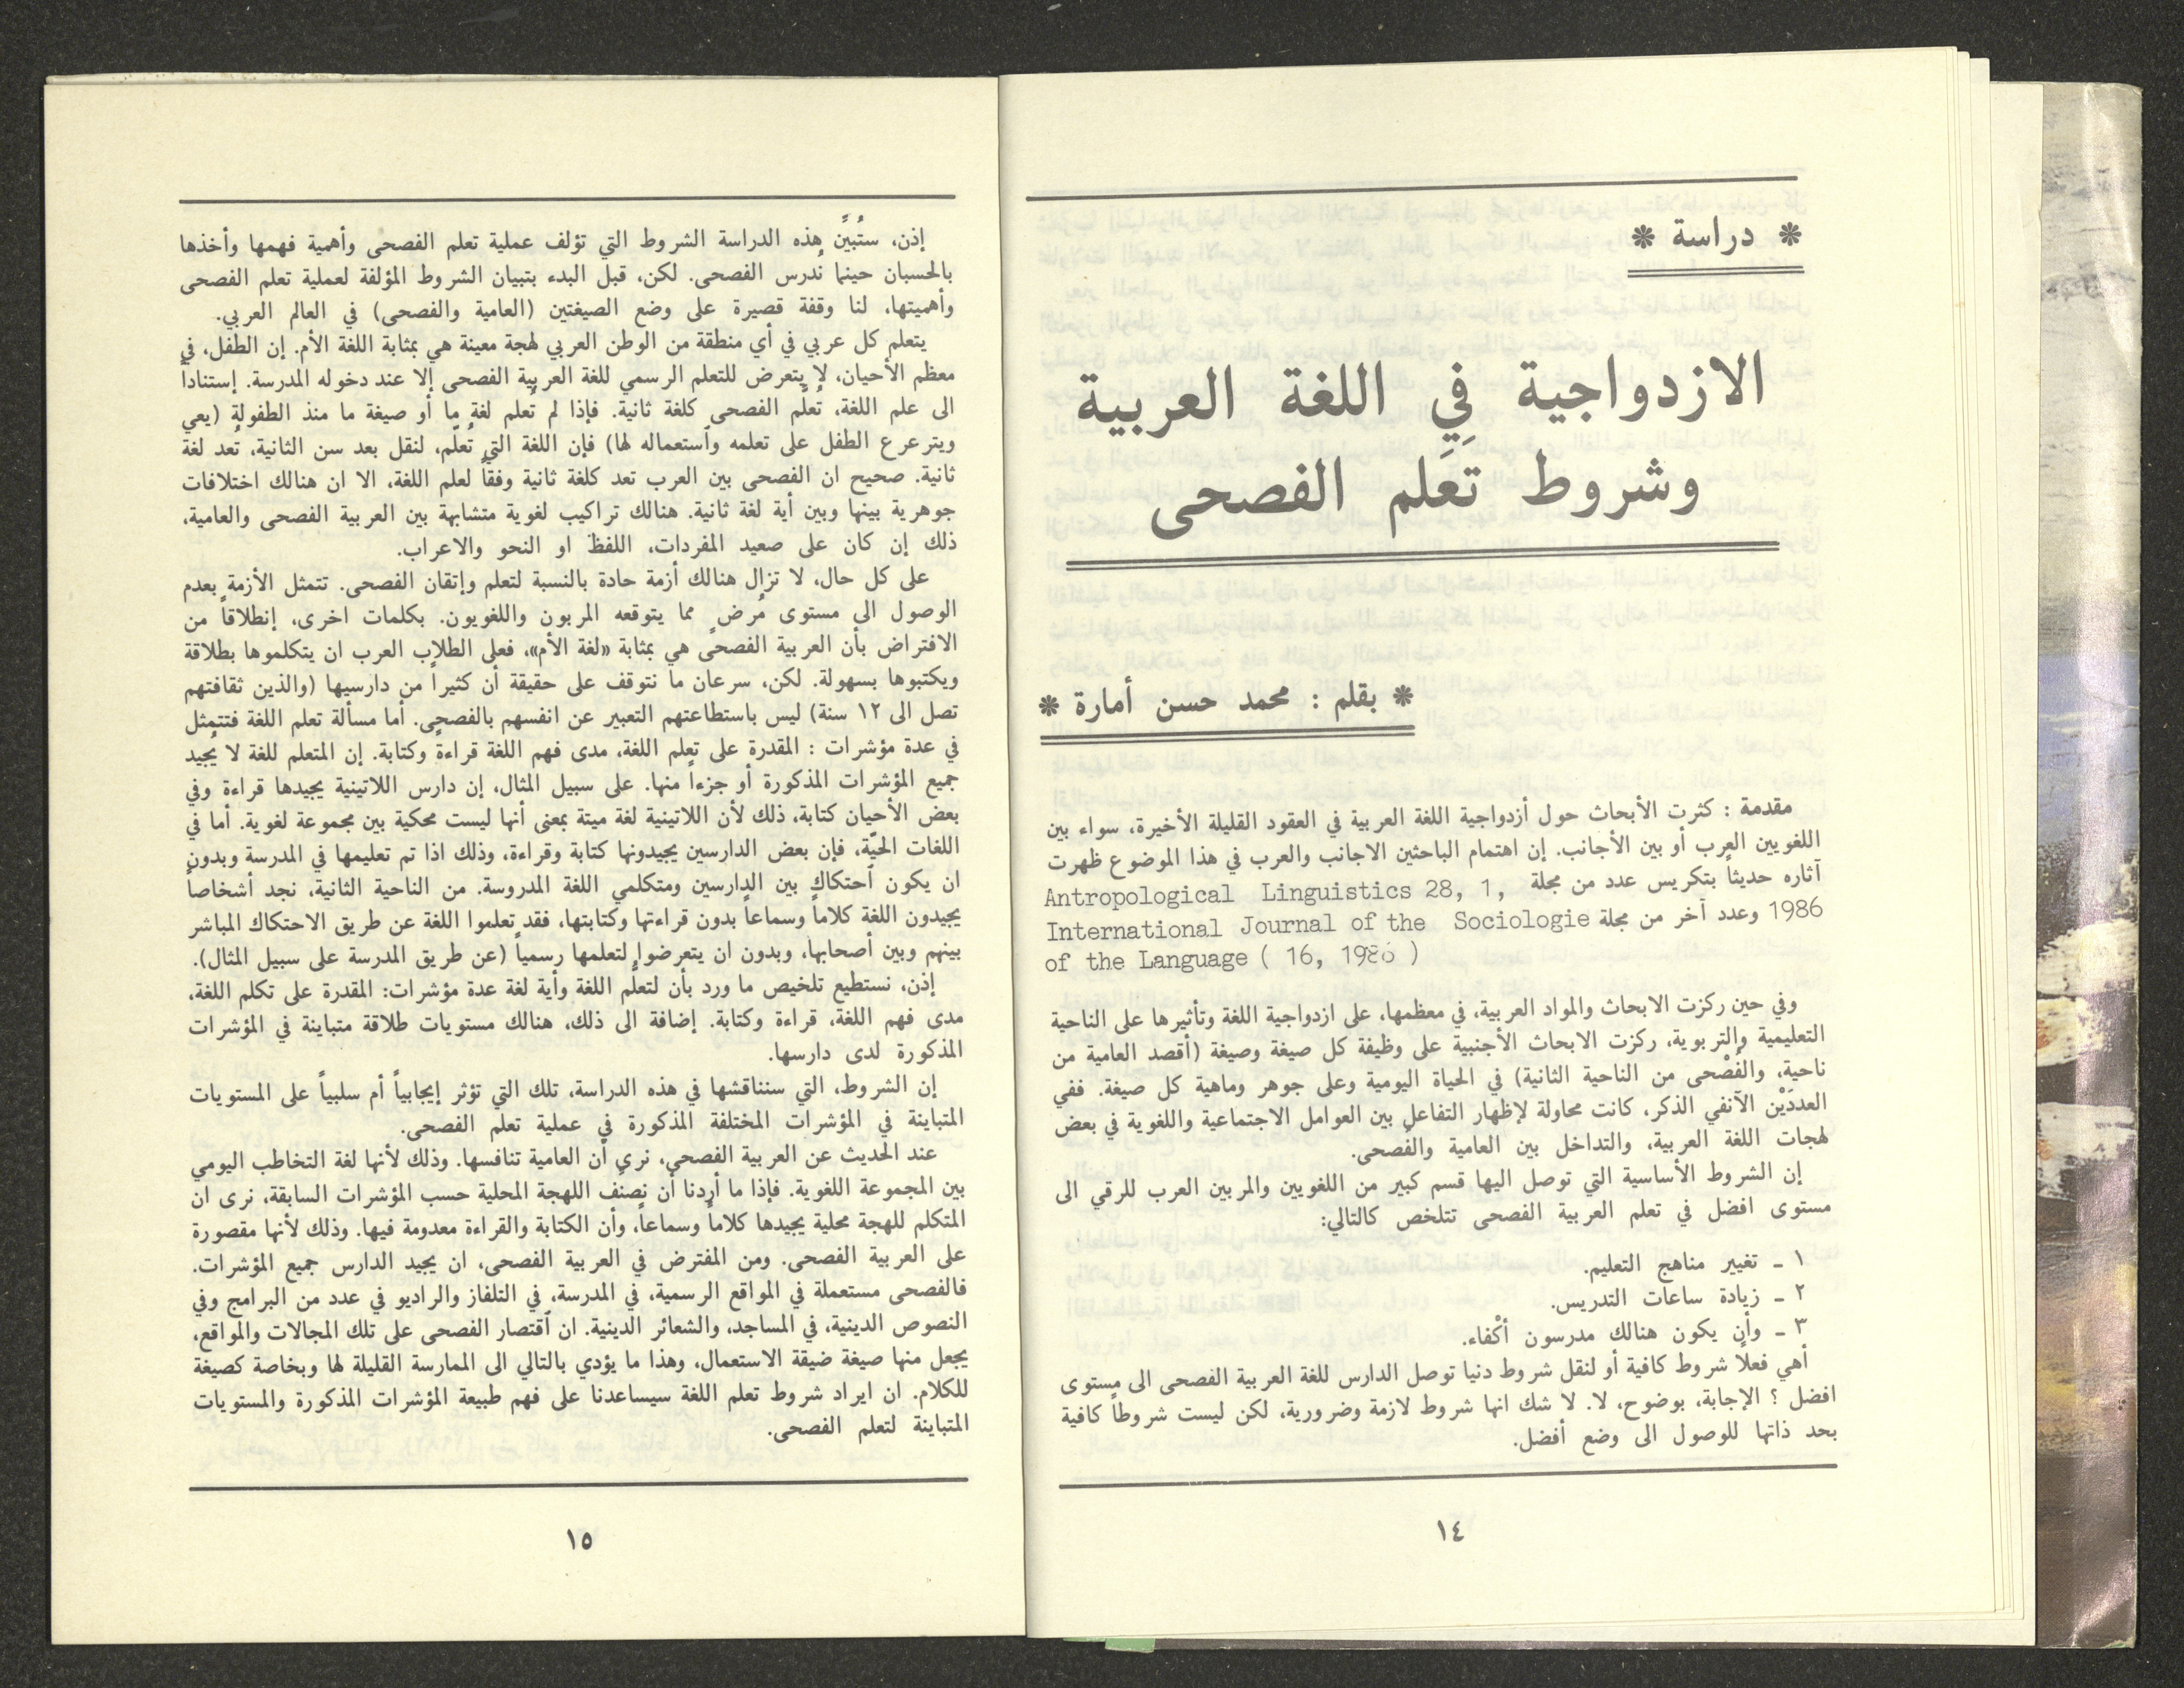 * دراسة *
الازدواجية في اللغة العربية
وشروط تعلم الفصحى
* بقلم : محمد حسن أمارة *
مقدمة : كثرت الأبحاث حول أزدواجية اللغة العربية في العقود القليلة الأخيرة، سواء بين
اللغويين العرب أو بين الأجانب. إن اهتمام الباحثين الاجانب والعرب في هذا الموضوع ظهرت
آثاره حديثاً بتكريس عدد من مجلة Antropological Linguistics 28, 1,
1986 وعدد آخر من مجلة International Journal of the Sociologie
of the Language ( 16, 1986 )
وفي حين ركزت الابحاث والمواد العربية، في معظمها، على ازدواجية اللغة وتأثيرها على الناحية
التعليمية والتربوية، ركزت الابحاث الأجنبية على وظيفة كل صيغة وصيغة (أقصد العامية من
ناحية، والفُصْحى من الناحية الثانية) في الحياة اليومية وعلى جوهر وماهية كل صيغة. ففي
العددَيْن الآنفي الذكر، كانت محاولة لإظهار التفاعل بين العوامل الاجتماعية واللغوية في بعض
لهجات اللغة العربية، والتداخل بين العامية والفُصحى.
إن الشروط الأساسية التي توصل اليها قسم كبير من اللغويين والمربين العرب للرقي الى
مستوى افضل في تعلم العربية الفصحى تتلخص كالتالي:
١ ـ تغيير مناهج التعليم.
٢ ـ زيادة ساعات التدريس.
٣ ـ وأن يكون هنالك مدرسون أكْفاء.
أهي فعلاً شروط كافية أو لنقل شروط دنيا توصل الدارس للغة العربية الفصحى الى مستوى
افضل ؟ الإجابة، بوضوح، لا. لا شك انها شروط لازمة وضرورية، لكن ليست شروطاً كافية
بحد ذاتها للوصول الى وضع أفضل.
١٤
إذن، ستُبيِّن هذه الدراسة الشروط التي تؤلف عملية تعلم الفصحى وأهمية فهمها وأخذها
بالحسبان حينما نُدرس الفصحى. لكن، قبل البدء بتبيان الشروط المؤلفة لعملية تعلم الفصحى
وأهميتها، لنا وقفة قصيرة على وضع الصيغتين (العامية والفصحى) في العالم العربي.
يتعلم كل عربي في أي منطقة من الوطن العربي لهجة معينة هي بمثابة اللغة الأم. إن الطفل، في
معظم الأحيان، لا يتعرض للتعلم الرسمي للغة العربية الفصحى إلا عند دخوله المدرسة. إستناداً
الى علم اللغة، تُعلَّم الفصحى كلغة ثانية. فإذا لم تُعلم لغة ما أو صيغة ما منذ الطفولة (يعي
ويترعرع الطفل على تعلمه وآستعماله لها) فإن اللغة التي تُعلّم، لنقل بعد سن الثانية، تُعد لغة
ثانية. صحيح ان الفصحى بين العرب تعد كلغة ثانية وفقاً لعلم اللغة، الا ان هنالك اختلافات
جوهرية بينها وبين أية لغة ثانية. هنالك تراكيب لغوية متشابهة بين العربية الفصحى والعامية،
ذلك إن كان على صعيد المفردات، اللفظ او النحو والاعراب.
على كل حال، لا تزال هنالك أزمة حادة بالنسبة لتعلم وإتقان الفصحى. تتمثل الأزمة بعدم
الوصول الى مستوى مُرضٍ مما يتوقعه المربون واللغويون. بكلمات اخرى، إنطلاقاً من
الافتراض بأن العربية الفصحى هي بمثابة «لغة الأم»، فعلى الطلاب العرب ان يتكلموها بطلاقة
ويكتبوها بسهولة. لكن، سرعان ما نتوقف على حقيقة أن كثيراً من دارسيها (والذين ثقافتهم
تصل الى ١٢ سنة) ليس باستطاعتهم التعبير عن انفسهم بالفصحى. أما مسألة تعلم اللغة فتتمثل
في عدة مؤشرات : المقدرة على تعلم اللغة، مدى فهم اللغة قراءةً وكتابة. إن المتعلم للغة لا يُجيد
جميع المؤشرات المذكورة أو جزءاً منها. على سبيل المثال، إن دارس اللاتينية يجيدها قراءة وفي
بعض الأحيان كتابة، ذلك لأن اللاتينية لغة ميتة بمعنى أنها ليست محكية بين مجموعة لغوية. أما في
اللغات الحيّة، فإن بعض الدارسين يجيدونها كتابة وقراءة، وذلك اذا تم تعليمها في المدرسة وبدون
ان يكون آحتكاك بين الدارسين ومتكلمي اللغة المدروسة. من الناحية الثانية، نجد أشخاصاً
يجيدون اللغة كلاماً وسماعاً بدون قراءتها وكتابتها، فقد تعلموا اللغة عن طريق الاحتكاك المباشر
بينهم وبين أصحابها، وبدون ان يتعرضوا لتعلمها رسمياً (عن طريق المدرسة على سبيل المثال).
إذن، نستطيع تلخيص ما ورد بأن لتعلُّم اللغة وأية لغة عدة مؤشرات: المقدرة على تكلم اللغة،
مدى فهم اللغة، قراءة وكتابة. إضافة الى ذلك، هنالك مستويات طلاقة متباينة في المؤشرات
المذكورة لدى دارسها.
إن الشروط، التي سنناقشها في هذه الدراسة، تلك التي تؤثر إيجابياً أم سلبياً على المستويات
المتباينة في المؤشرات المختلفة المذكورة في عملية تعلم الفصحى.
عند الحديث عن العربية الفصحى، نرى أن العامية تنافسها. وذلك لأنها لغة التخاطب اليومي
بين المجموعة اللغوية. فإذا ما أردنا أن نصنف اللهجة المحلية حسب المؤشرات السابقة، نرى ان
المتكلم للهجة محلية يجيدها كلاماً وسماعاً، وأن الكتابة والقراءة معدومة فيها. وذلك لأنها مقصورة
على العربية الفصحى. ومن المفترض في العربية الفصحى، ان يجيد الدارس جميع المؤشرات.
فالفصحى مستعملة في المواقع الرسمية، في المدرسة، في التلفاز والراديو في عدد من البرامج وفي
النصوص الدينية، في المساجد، والشعائر الدينية. ان آقتصار الفصحى على تلك المجالات والمواقع،
يجعل منها صيغة ضيقة الاستعمال، وهذا ما يؤدي بالتالي الى الممارسة القليلة لها وبخاصة كصيغة
للكلام. ان ايراد شروط تعلم اللغة سيساعدنا على فهم طبيعة المؤشرات المذكورة والمستويات
المتباينة لتعلم الفصحى.
١٥